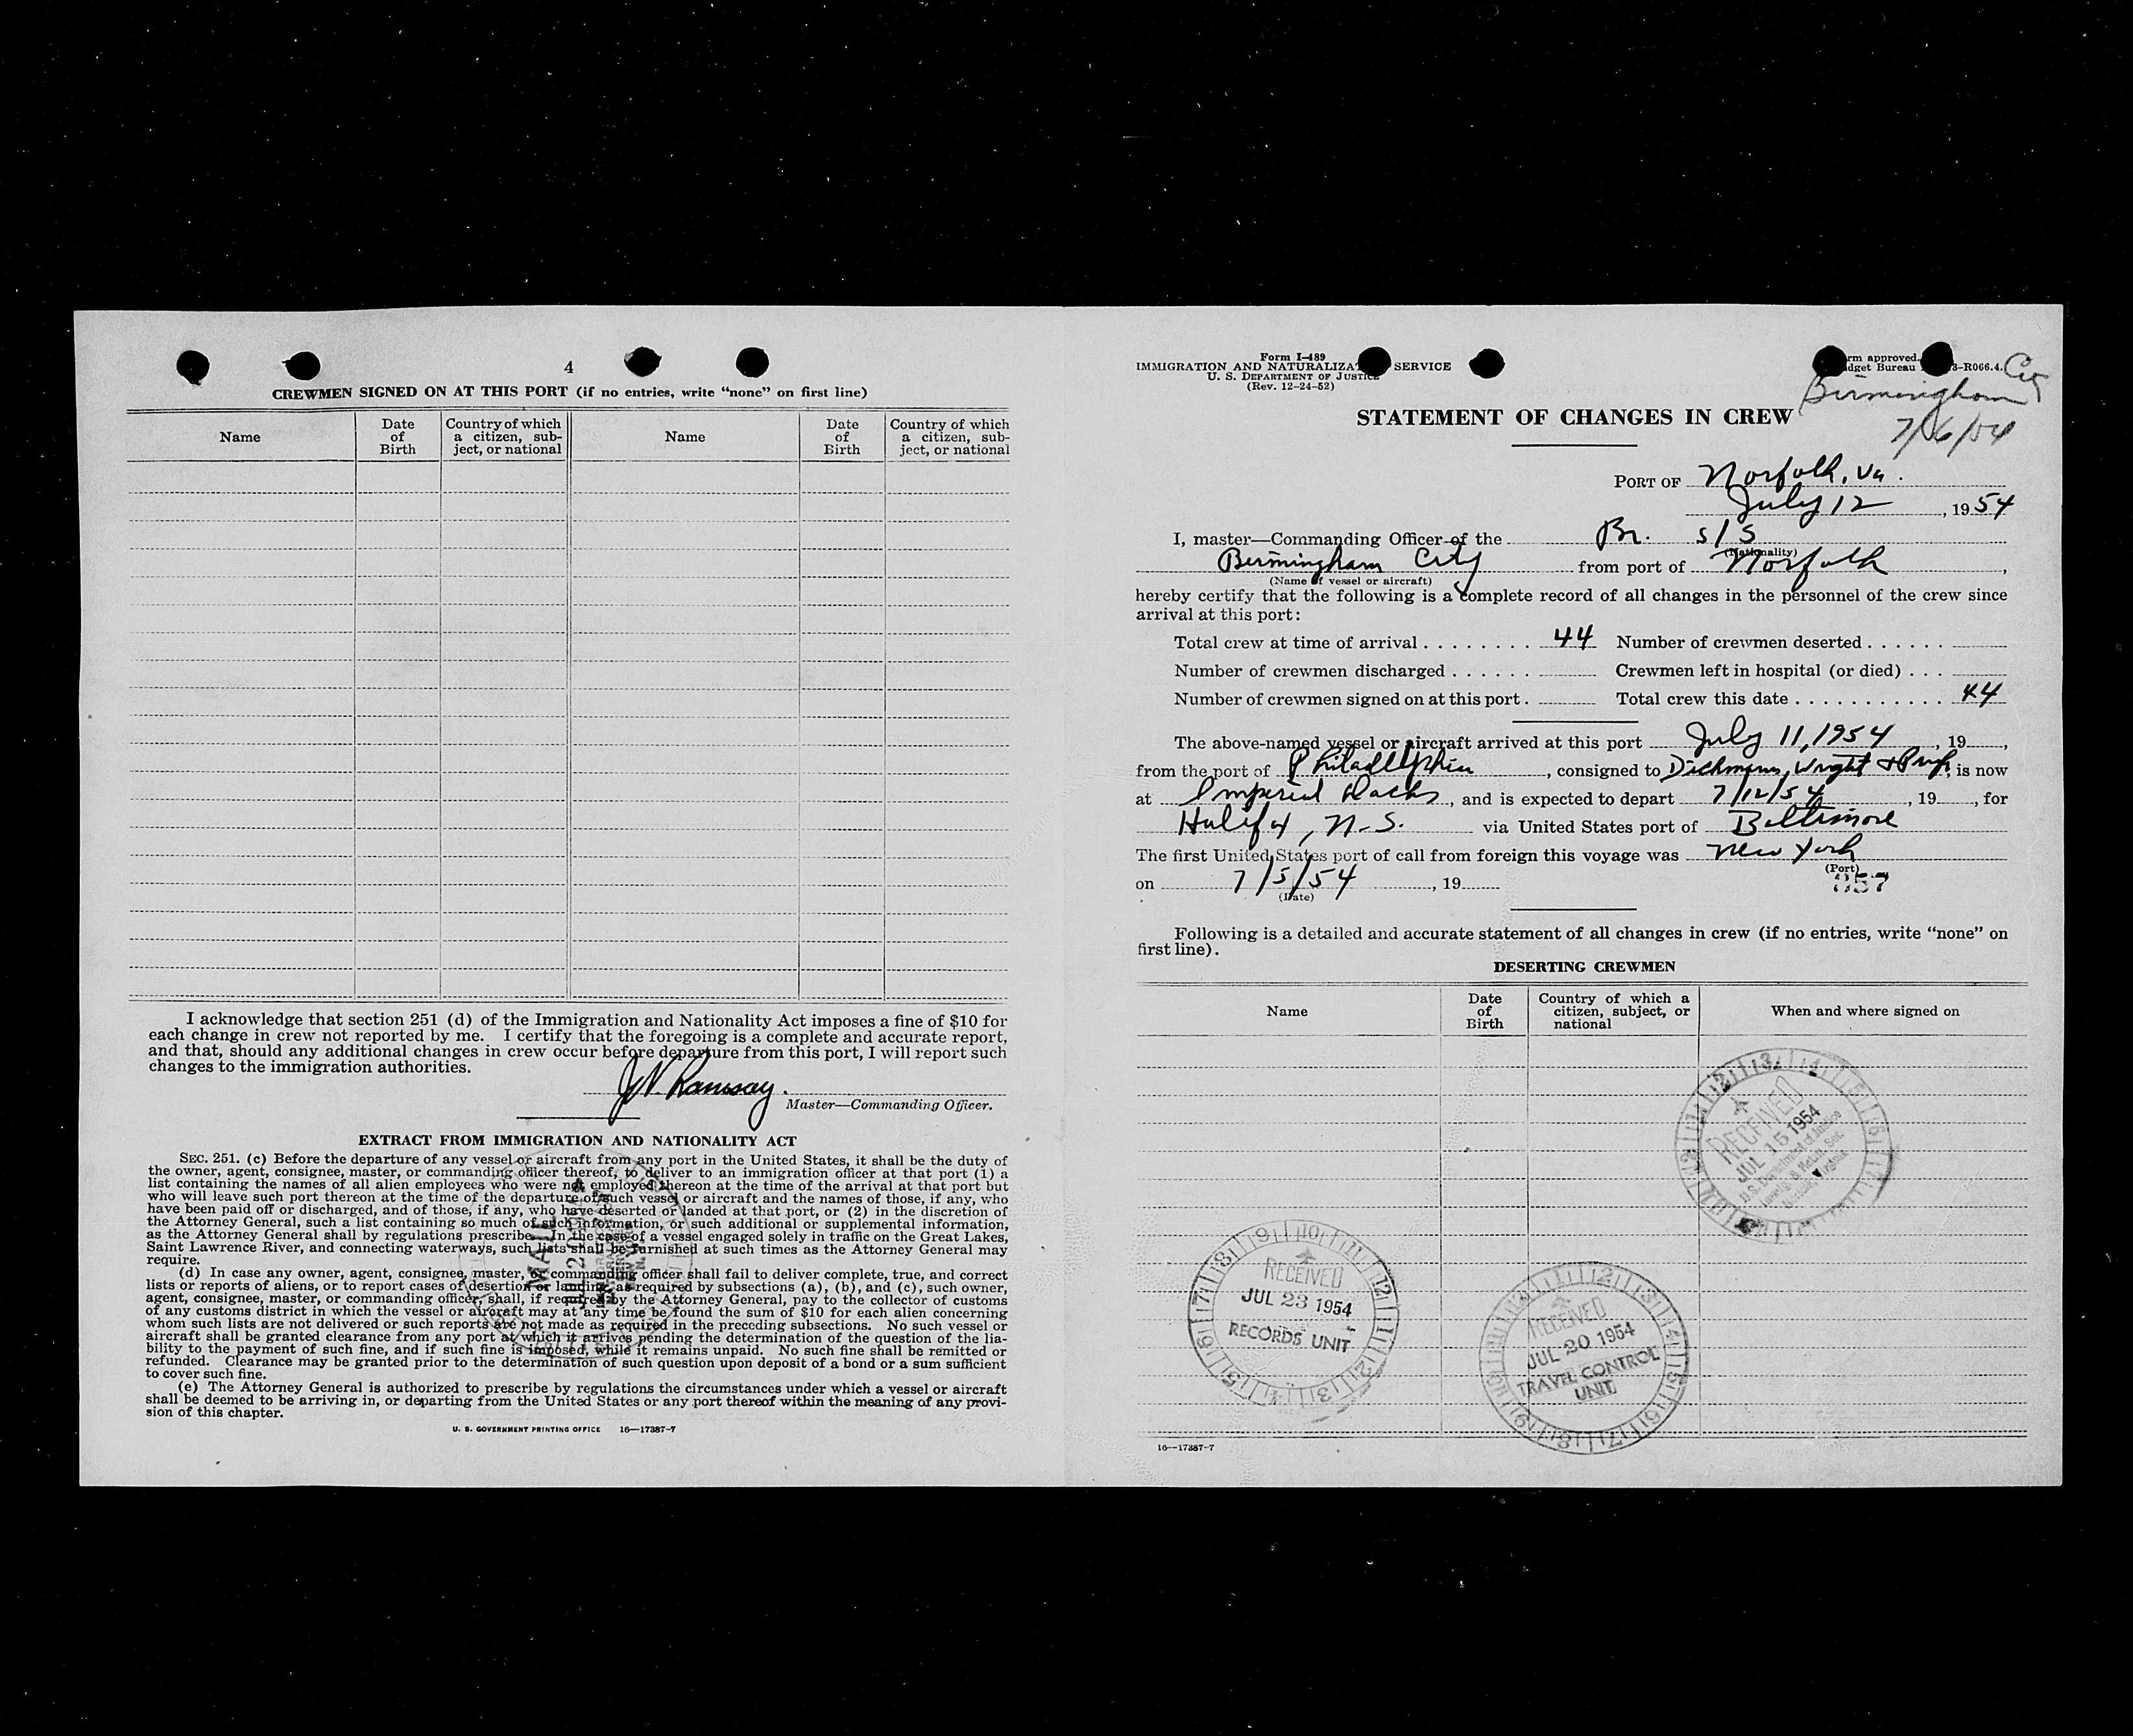 4
CREWMEN SIGNED ON AT THIS PORT (if no entries, write “none” on first line)
Name
Date of Birth
Country of which a citizen, sub-ject, or national
Name
Date of Birth
Country of which a citizen, sub-ject, or national
I acknowledge that section 251 (d) of the Immigration and Nationality Act imposes a fine of $10 for
each change in crew not reported by me. I certify that the foregoing is a complete and accurate report,
and that, should any additional changes in crew occur before departure from this port, I will report such
changes to the immigration authorities.
J.V. Ramsay.
Master—Commanding Officer.
EXTRACT FROM IMMIGRATION AND NATIONALITY ACT
SEC. 251. (c) Before the departure of any vessel or aircraft from any port in the United States, it shall be the duty of
the owner, agent, consignee, master, or commanding officer thereof, to deliver to an immigration officer at that port (1) a
list containing the names of all alien employees who were not employed thereon at the time of the arrival at that port but
who will leave such port thereon at the time of the departure of such vessel or aircraft and the names of those, if any, who
have been paid off or discharged, and of those, if any, who have deserted or landed at that port, or (2) in the discretion of
the Attorney General, such a list containing so much of such information, or such additional or supplemental information,
as the Attorney General shall by regulations prescribe. In the case of a vessel engaged solely in traffic on the Great Lakes,
Saint Lawrence River, and connecting waterways, such lists shall be furnished at such times as the Attorney General may
require.
(d) In case any owner, agent, consignee, master, or commanding officer shall fail to deliver complete, true, and correct
lists or reports of aliens, or to report cases of desertion or landing as required by subsections (a), (b), and (c), such owner,
agent, consignee, master, or commanding officer, shall, if required by the Attorney General, pay to the collector of customs
of any customs district in which the vessel or aircraft may at any time be found the sum of $10 for each alien concerning
whom such lists are not delivered or such reports are not made as required in the preceding subsections. No such vessel or
aircraft shall be granted clearance from any port at which it arrives pending the determination of the question of the lia-
bility to the payment of such fine, and if such fine is imposed, while it remains unpaid. No such fine shall be remitted or
refunded. Clearance may be granted prior to the determination of such question upon deposit of a bond or a sum sufficient
to cover such fine.
(e) The Attorney General is authorized to prescribe by regulations the circumstances under which a vessel or aircraft
shall be deemed to be arriving in, or departing from the United States or any port thereof within the meaning of any provi-
sion of this chapter.
MAIL
U. S. GOVERNMENT PRINTING OFFICE 16—17387-7
Form I-489
IMMIGRATION AND NATURALIZAT SERVICE
U. S. DEPARTMENT OF JUSTICE
(Rev. 12-24-52)
rm approved.
dget Bureau 3-R066.4.
City
Birmingham
7/ 6/54
STATEMENT OF CHANGES IN CREW
PORT OF Norfolk, Va.
July 12, 1954
I, master—Commanding Officer of the Br. s/s
(Nationality)
Birmingham City from port of Norfolk,
(Name of vessel or aircraft)
hereby certify that the following is a complete record of all changes in the personnel of the crew since
arrival at this port:
Total crew at time of arrival . . . . . . . . 44 Number of crewmen deserted . . . . . .
Number of crewmen discharged . . . . . . Crewmen left in hospital (or died) . . .
Number of crewmen signed on at this port . Total crew this date . . . . . . . . . . . 44
The above-named vessel or aircraft arrived at this port July 11, 1954, 19 ,
from the port of Philadelphia, consigned to Dichmann, Wright & Pugh, is now
at Imperial Docks, and is expected to depart 7/12/54, 19 , for
Halifax, N.S. via United States port of Baltimore
The first United States port of call from foreign this voyage was New York
(Port)
on 7/5/54, 19
(Date)
357
Following is a detailed and accurate statement of all changes in crew (if no entries, write “none” on
first line).
DESERTING CREWMEN
Name
Date of Birth
Country of which a citizen, subject, or national
When and where signed on
RECEIVED
JUL 15 1954
U.S. Department of Justice
RECEIVED
JUL 23 1954
RECORDS UNIT
RECEIVED
JUL 20 1954
TRAVEL CONTROL
UNIT
16—17387-7